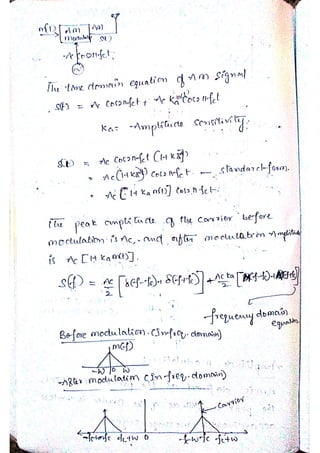 m(t) AM modulator s(t)
Ac cos2πfct
The time domain equation of AM signal
s(t) = Ac cos2πfct + Ac Ka m(t) cos2πfct
Ka = Amplitude Sensitivity.
s(t) = Ac cos2πfct (1+ka m(t))
= Ac (1+ka m(t)) cos2πfct — standard form.
= Ac [1+ka m(t)] cos2πfct.
The peak amplitude of the carrier before
modulation is Ac, and after modulation Amplitude
is Ac [1+ka m(t)].
S(f) = Ac/2 [δ(f-fc) + δ(f+fc)] + Ac ka/2 [M(f-fc)+M(f+fc)]
frequency domain
equation
Before modulation. (In freq. domain)
M(f)
-W 0 W
After modulation (In freq. domain)
carrier
0